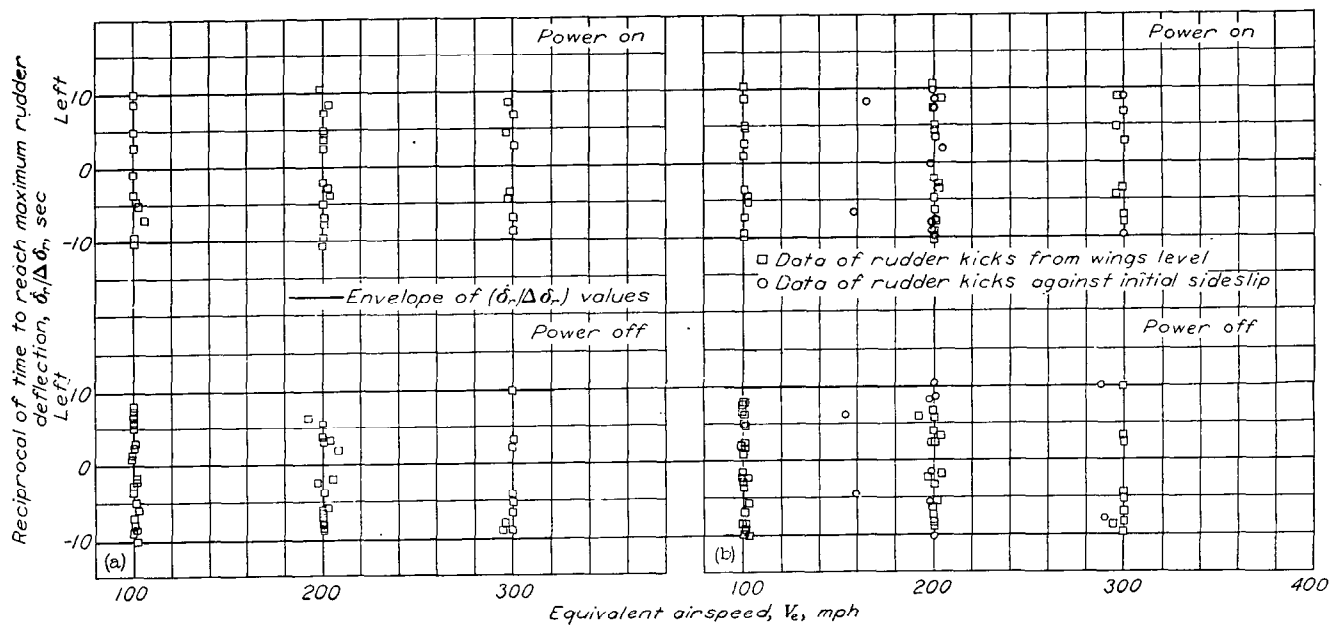 Reciprocal of time to reach maximum rudder
deflection, δ̇r/Δδr, sec
Left
Left
Power on
10
0
-10
Envelope of (δ̇r/Δδr) values
Power off
10
0
-10
(a)
100
200
300
Power on
10
0
-10
□ Data of rudder kicks from wings level
○ Data of rudder kicks against initial sideslip
Power off
10
0
-10
(b)
100
200
300
400
Equivalent airspeed, Ve, mph